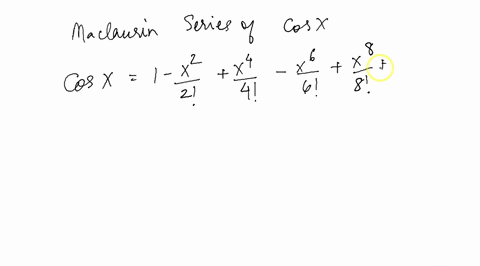 Maclaurin Series of Cos X
Cos X = 1 - x²/2! + x⁴/4! - x⁶/6! + x⁸/8! +